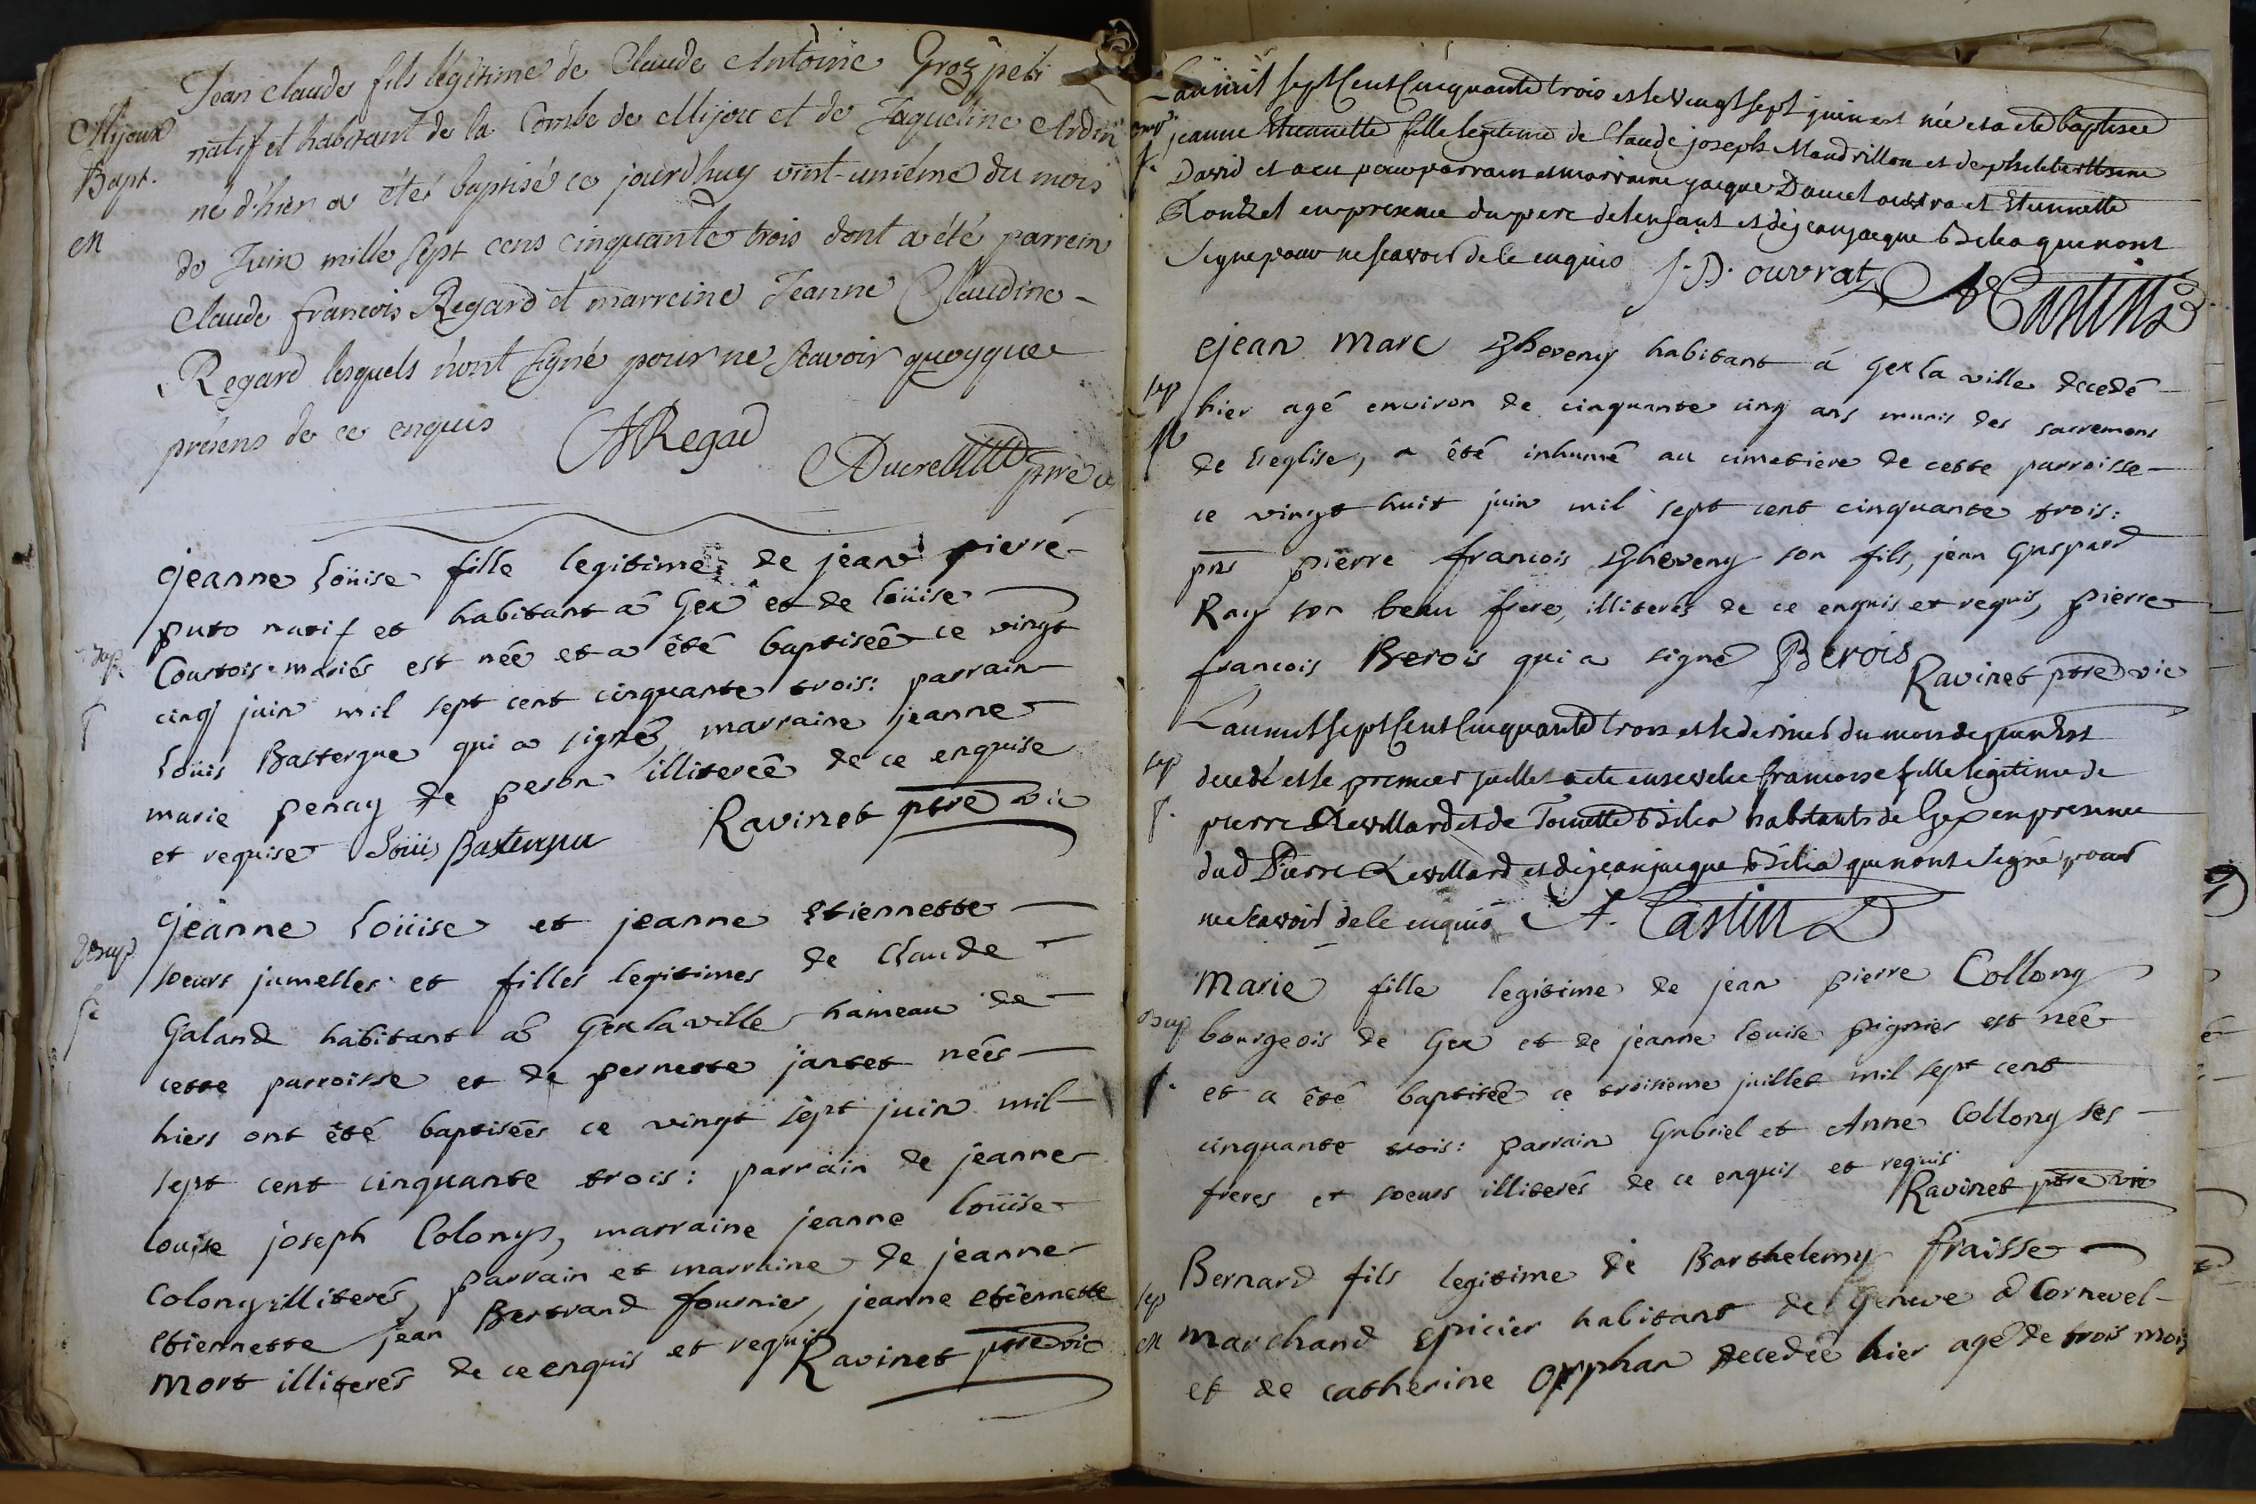 Jean claude fils légitime de Claude Antoine Groz peti
Mijoux natif et habitant de la Combe de Mijoux et de Jaqueline
Bapt. né d'hier a été baptisé ce jourdhuy vint-unième du mois
M de Juin mille sept cens cinquante trois dont a été parrein
Claude francois Regard et marreine Jeanne Claudine
Regard lesquels n'ont signé pour ne scavoir quoyque
présens de ce enquis
Regad
Ducret ptre
jeanne Loüise fille legitime de jean pierre
puto natif et habitant a Gex et de loüise
bap. Courtois mariés est née et a êté baptiseê ce vingt
f cinq juin mil sept cent cinquante trois: parrain
Loüis Bastergue qui a signé, marraine jeanne
marie penay de peron illitereê de ce enquise
et requise Loüis Bastergue Ravinet ptre vic
jeanne Loüise et jeanne Etiennette
soeurs jumelles et filles legitimes de Claude
Galand habitant a Gex la ville hameau de
cette parroisse et de pernette jantet neés
hier ont êté baptiseés ce vingt sept juin mil
sept cent cinquante trois: parrain de jeanne
Louise joseph Colony, marraine jeanne loüise
Colony illiterés, parrain et marraine de jeanne
etiennette jean Bertrand fournier, jeanne etiennette
mort illiterés de ce enquis et requis Ravinet ptre vic
Lan mil sept Cent Cinquante trois et le vingt sept juin est née et a eté baptisée
jeanne Etiennette fille legitime de Claude joseph Mandrillon et de
David et a eu pour parrain et marraine jacque Daniel ouvra et Etiennette
en presence du pere de lenfant et de jean jacque qui nont
signe pour ne scavoir de ce enquis J. D. ouvrat Castin
jean Marc habitant á Gex la ville decedé
sep hier agé environ de cinquante cinq ans munis des sacremens
de l'eglise, a êté inhumé au cimetiere de cette parroisse
ce vingt huit juin mil sept cent cinquante trois:
pns pierre francois son fils, jean Gaspard
Ray son beau frere, illiterés de ce enquis et requis, pierre
francois Berois qui a signé Berois
Ravinet ptre vic
Lan mil sept Cent Cinquante trois et le dernier du mois de juin est
sep decedé et le premier juillet a ete ensevelie francoise fille legitime de
f. pierre Revillard et de habitants de Gex en presence
dud Pierre Revillard et de jean jacque qui nont signé pour
ne scavoir de ce enquis Castin
Marie fille legitime de jean pierre Collony
bap bourgeois de Gex et de jeanne Louise pignier est née
f. et a êté baptiseê ce troisieme juillet mil sept cent
cinquante trois: parrain Gabriel et Anne Collony ses
freres et soeurs illiterés de ce enquis et requis
Ravinet ptre vic
Bernard fils legitime de Barthelemy fraisse
sep marchand epicier habitant de Geneve a Cornevel-
M et de catherine orphan decedée hier agé de trois mois